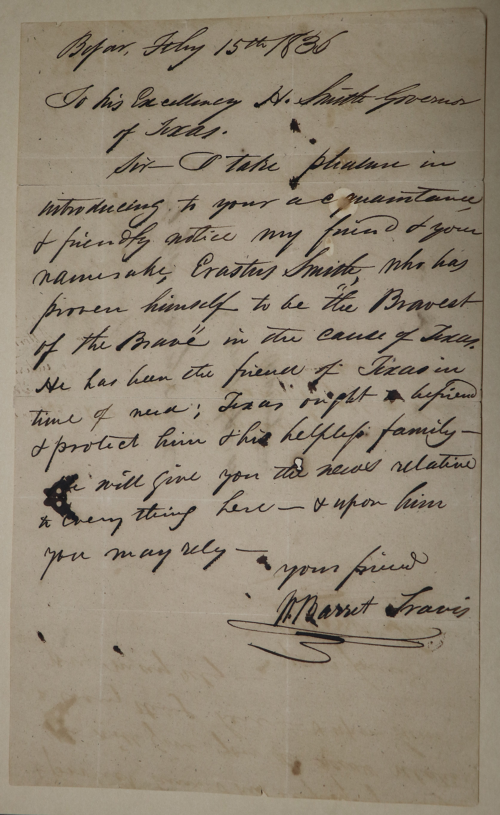 Bejar, Feby 15th 1836
To his Excellency H. Smith Governor
of Texas.
Sir I take pleasure in
introducing to your acquaintance
& friendly notice my friend & your
namesake, Erastus Smith, who has
proven himself to be "the Bravest
of the Brave" in the cause of Texas.
He has been the friend of Texas in
time of need; Texas ought to befriend
& protect him & his helpless family—
He will give you the news relative
to every thing here — & upon him
you may rely —
your friend
W. Barret Travis